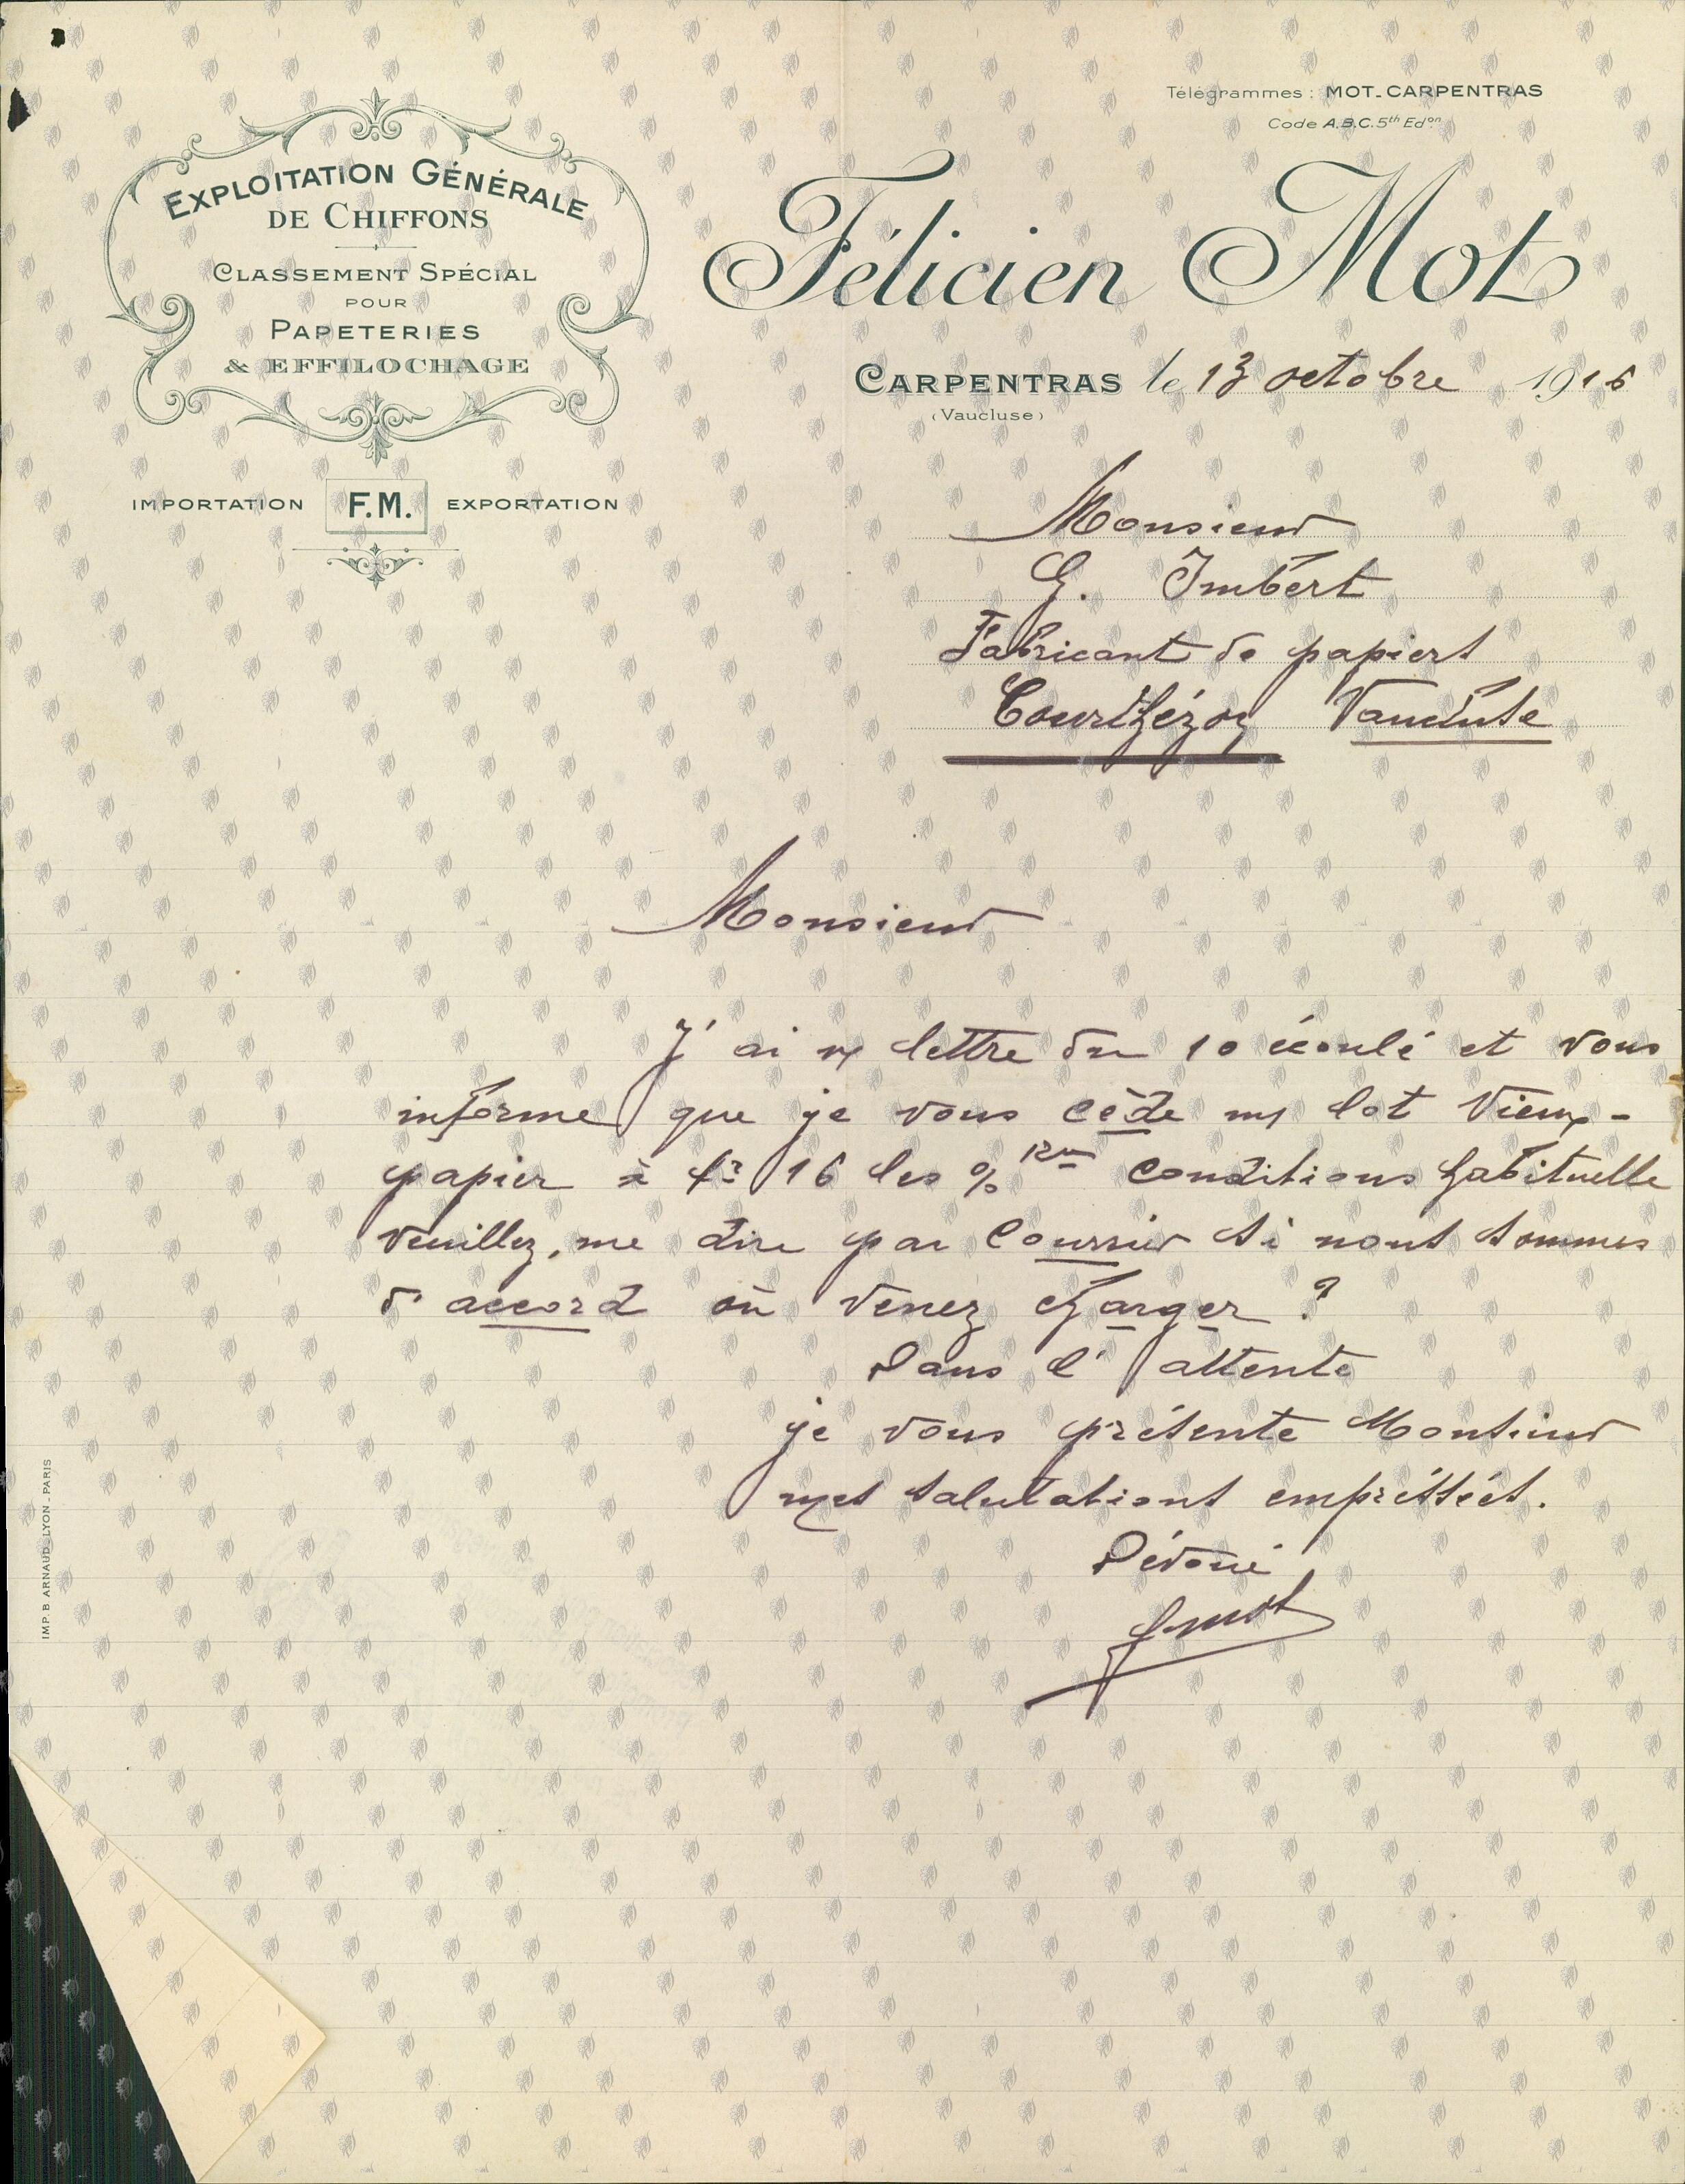 Télégrammes : MOT_CARPENTRAS
Code A.B.C. 5th Edon
EXPLOITATION GÉNÉRALE
DE CHIFFONS
CLASSEMENT SPÉCIAL
POUR
PAPETERIES
& EFFILOCHAGE
IMPORTATION F.M. EXPORTATION
Félicien Mot
CARPENTRAS le 13 octobre 1916
(Vaucluse)
Monsieur
G. Imbert
Fabricant de papiers
Courthézon Vaucluse
Monsieur
J'ai v/ lettre du 10 écoulé et vous
informe que je vous cède m/ lot Vieux-
papier à fr 16 les % conditions habituelle
veuillez, me dire par Courrier si nous sommes
d'accord où venez charger ?
Dans l'attente
je vous présente Monsieur
mes salutations empréssées.
Dévoué
fmot
IMP. B. ARNAUD_LYON_PARIS